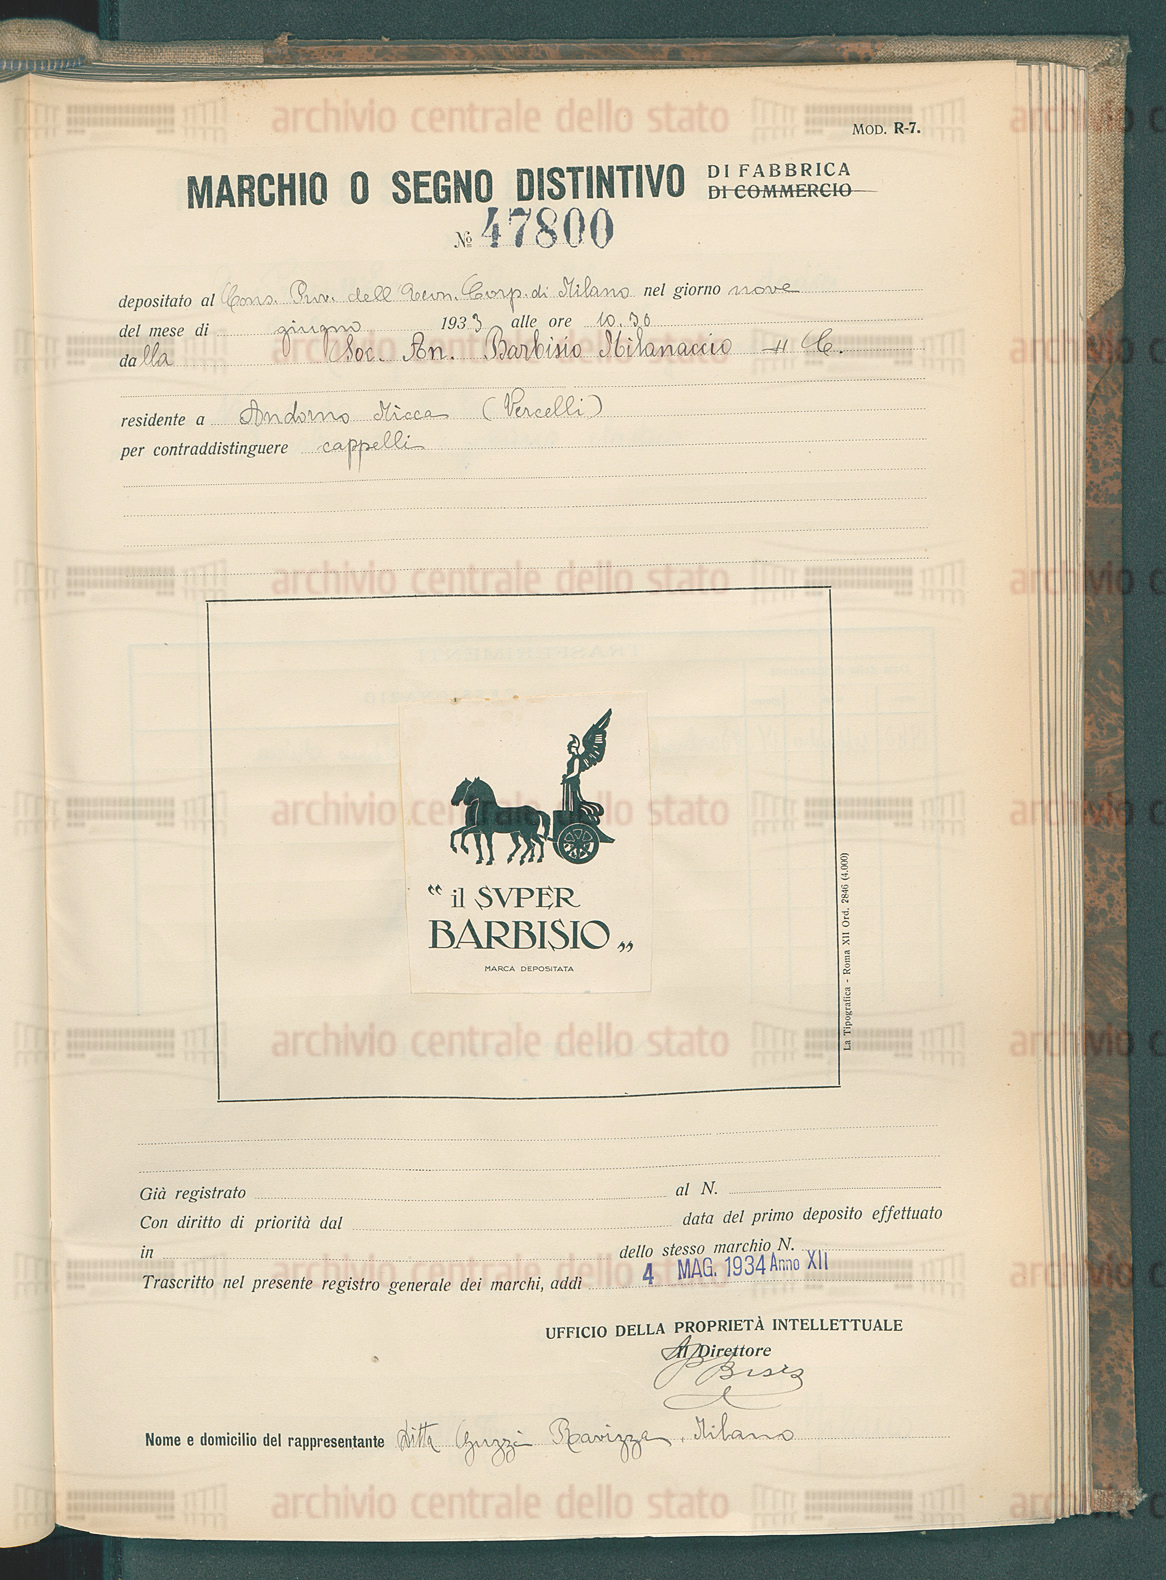 MOD. R-7.
MARCHIO O SEGNO DISTINTIVO DI FABBRICA
DI COMMERCIO
№ 47800
depositato al Cons. Prov. dell Econ. Corp. di Milano nel giorno nove
del mese di giugno 1933 alle ore 10.30
dalla Soc. An. Barbisio Milanaccio & C.
residente a Andorno Micca (Vercelli)
per contraddistinguere cappelli
“ il SVPER
BARBISIO „
MARCA DEPOSITATA
La Tipografica - Roma XII Ord. 2846 (4.000)
Già registrato al N.
Con diritto di priorità dal data del primo deposito effettuato
in dello stesso marchio N.
Trascritto nel presente registro generale dei marchi, addì 4 MAG. 1934 Anno XII
UFFICIO DELLA PROPRIETÀ INTELLETTUALE
Il Direttore
Nome e domicilio del rappresentante Ditta Guzzi Ravizza, Milano
archivio centrale dello stato